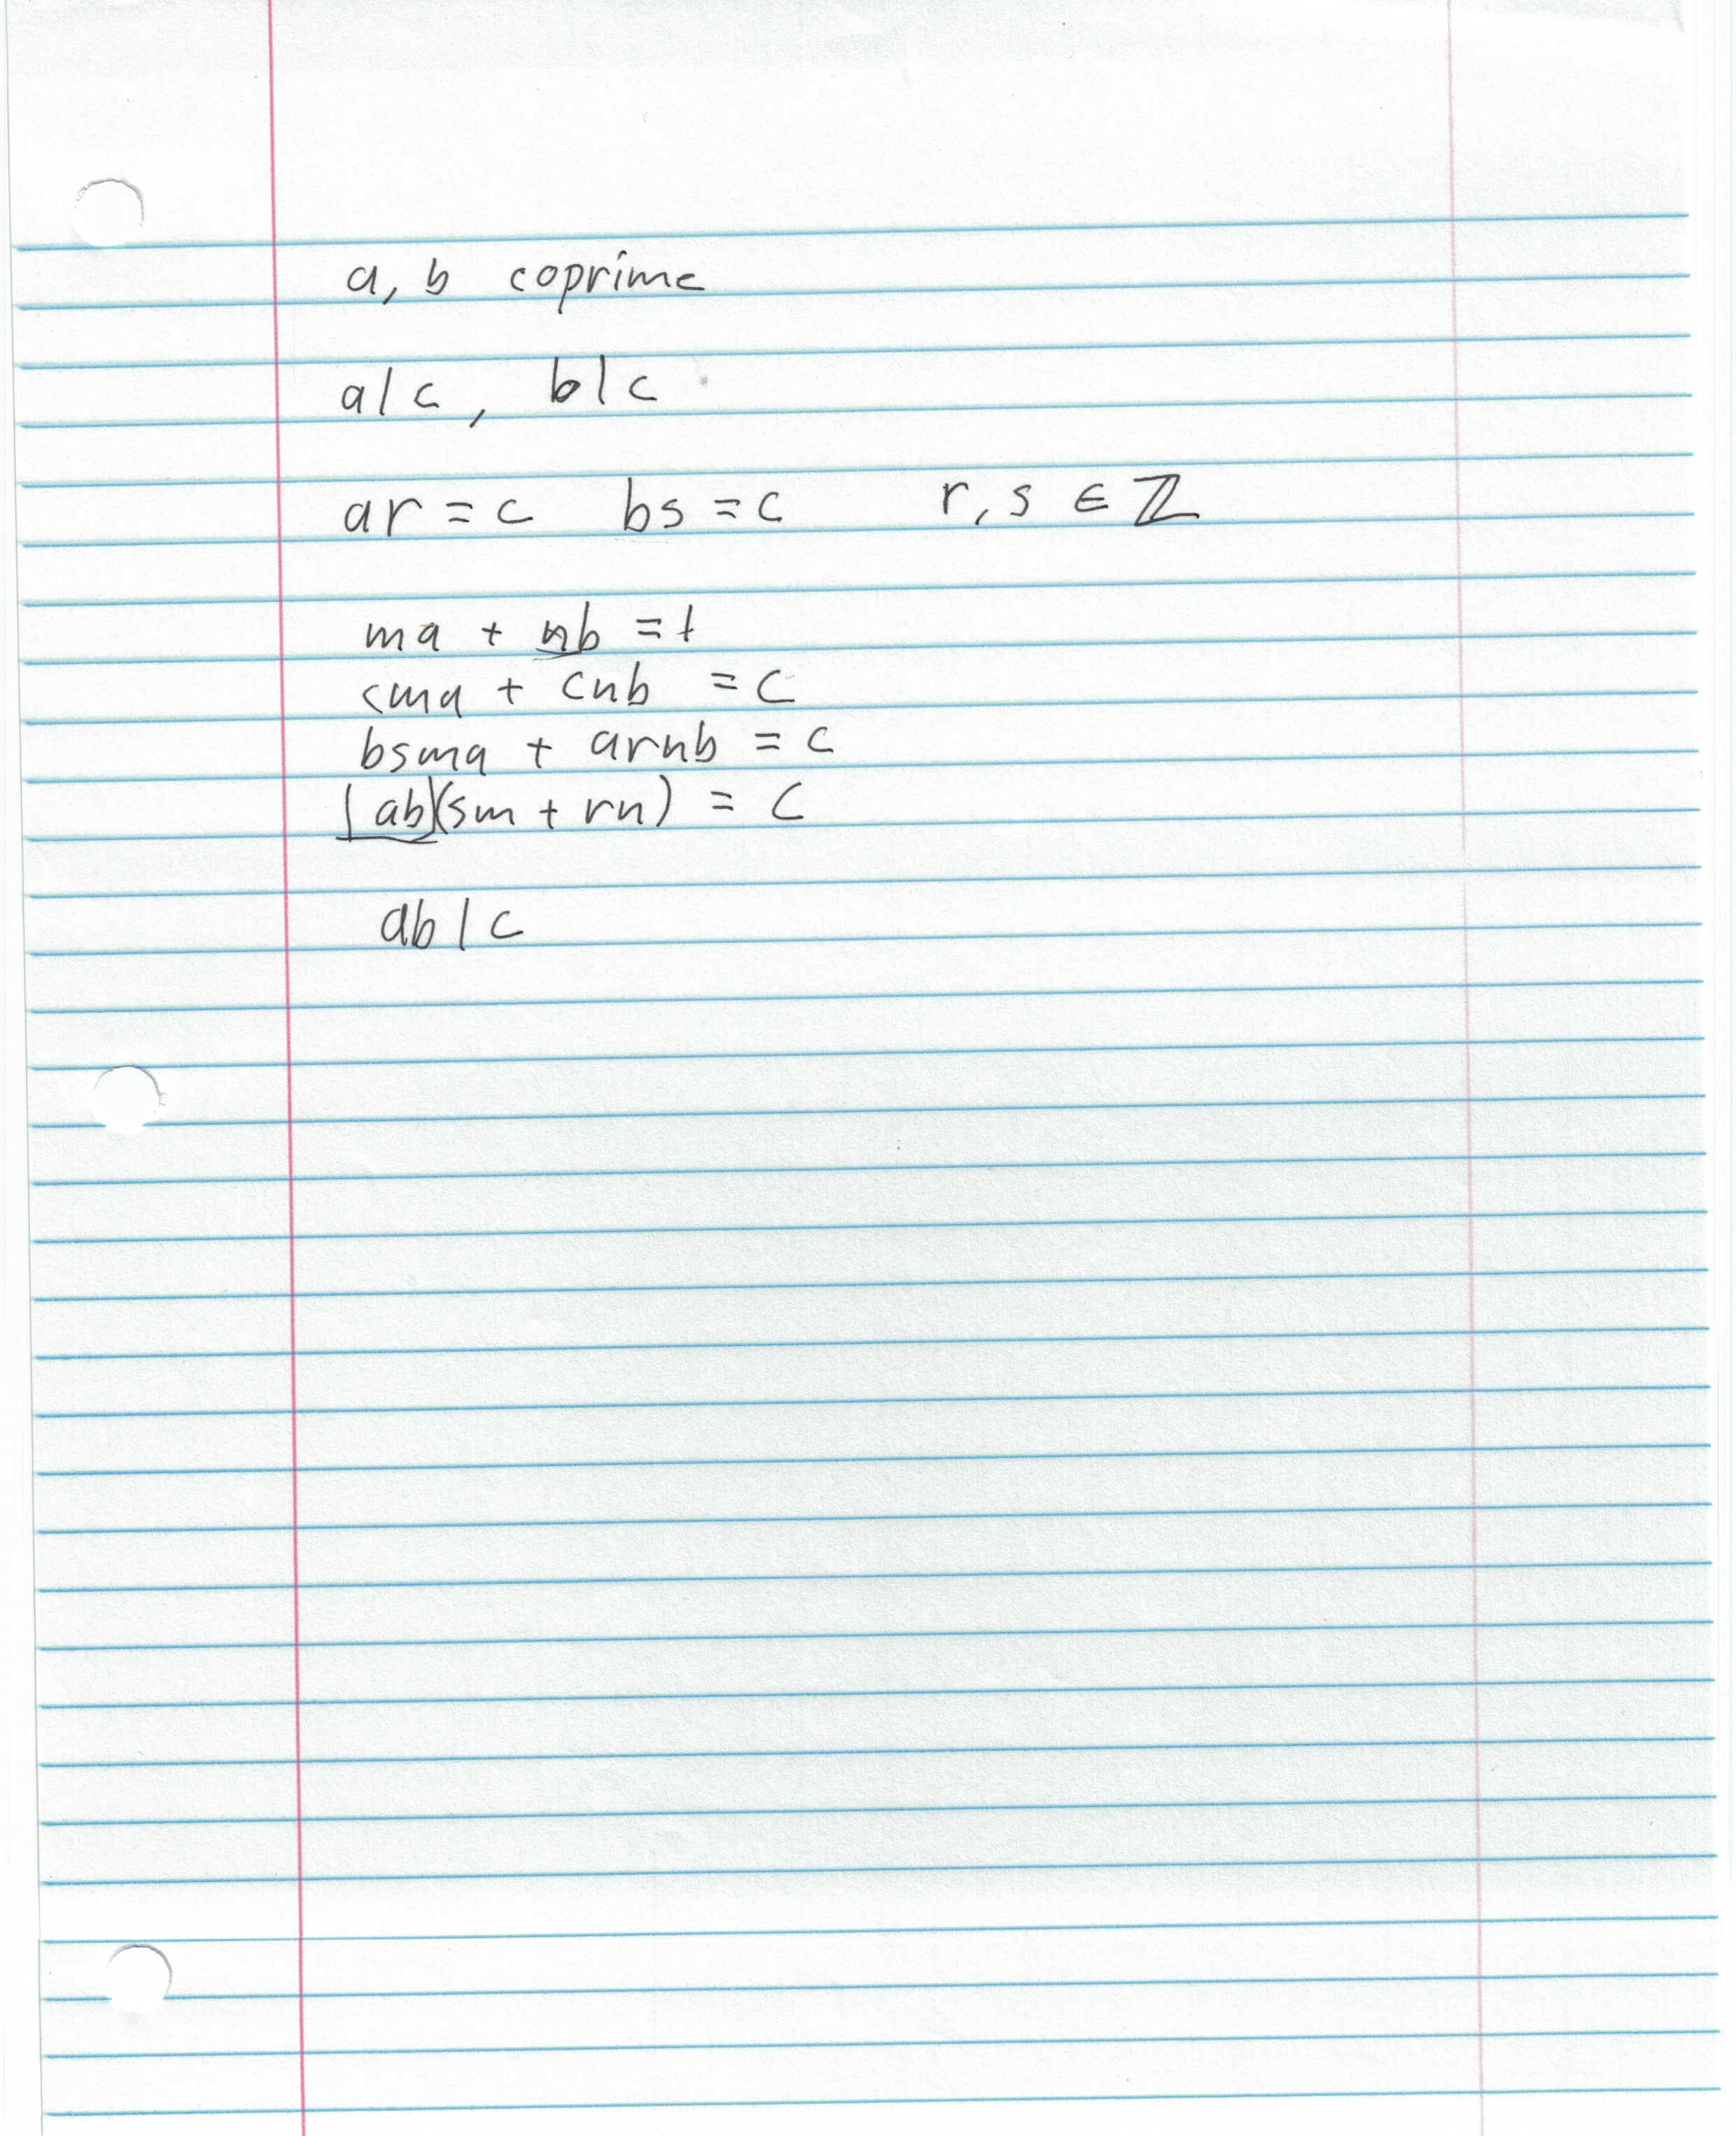 a, b coprime
a|c, b|c
ar = c bs = c r, s ∈ ℤ
ma + nb = 1
cma + cnb = c
bsma + arnb = c
(ab)(sm + rn) = c
ab | c